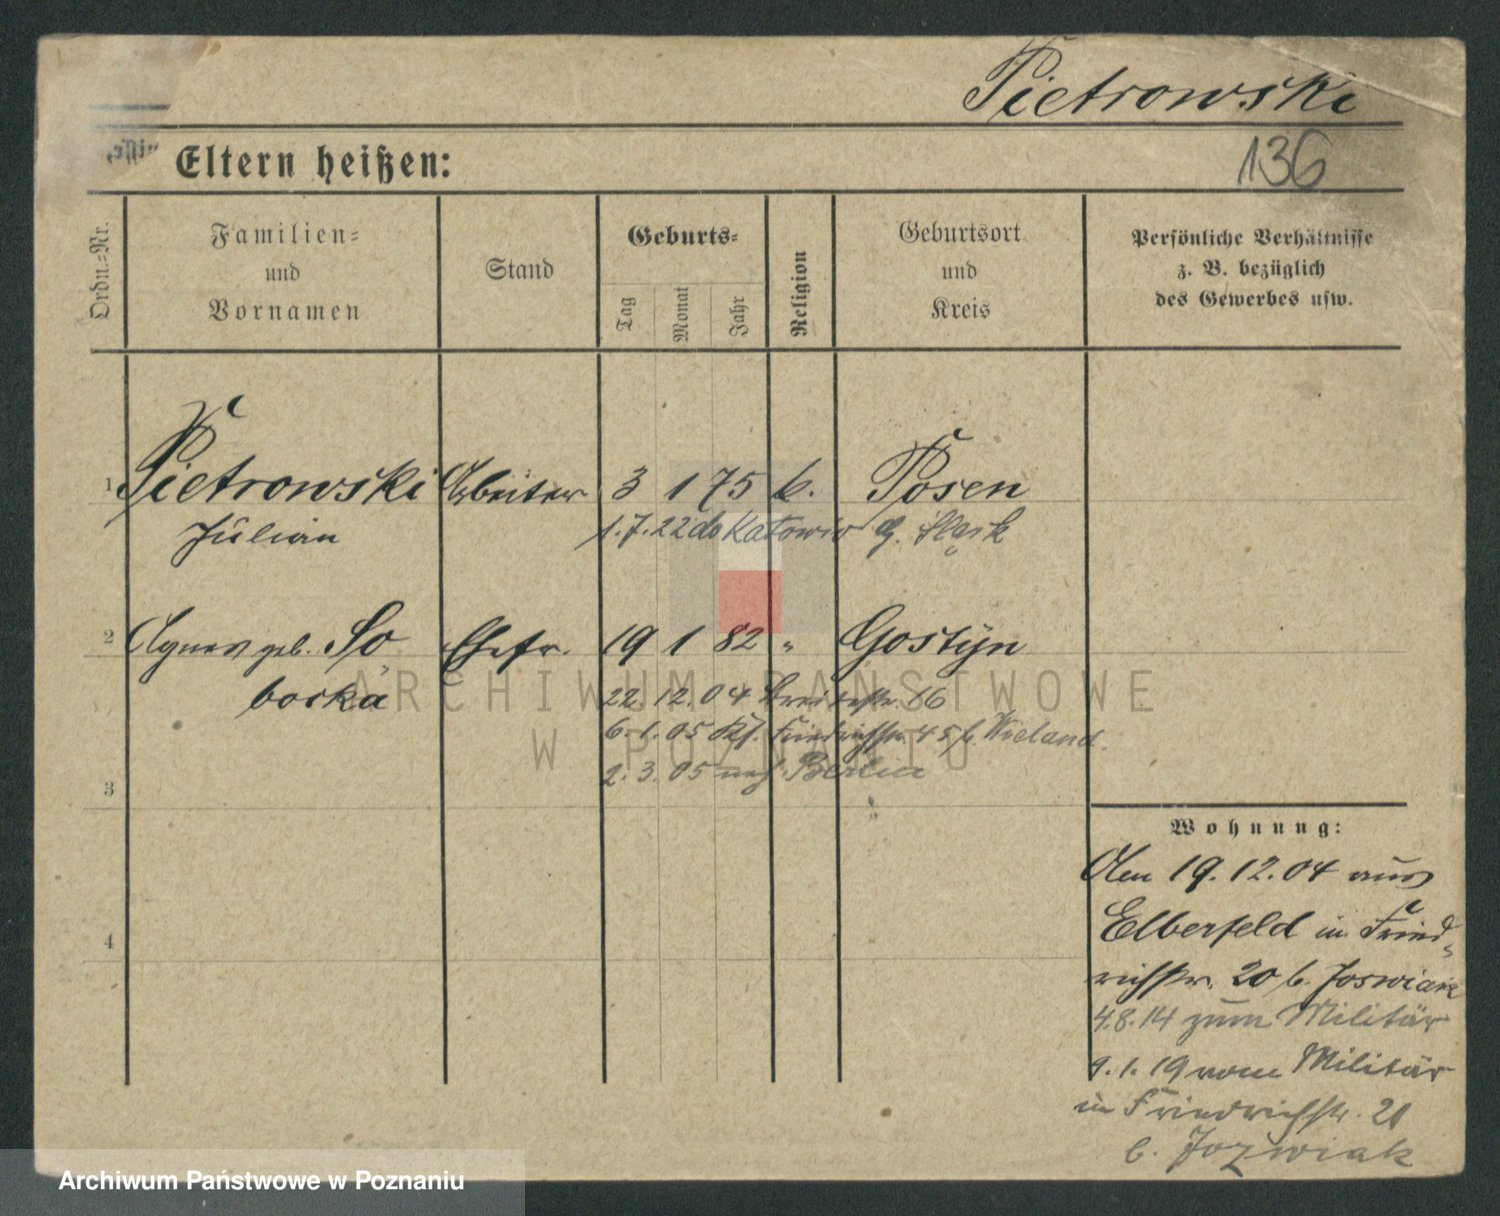 Pietrowski
Eltern heißen:
136
Ordn.-Nr.
Familien-
und
Vornamen
Stand
Geburts-
Tag
Monat
Jahr
Religion
Geburtsort
und
Kreis
Persönliche Verhältnisse
z. B. bezüglich
des Gewerbes usw.
1 Pietrowski Arbeiter 3 1 75 k. Posen
Julian 1.7.22 do Katowic G. Śląsk
2 Agnes geb. So Ehefr. 19 1 82 " Gostyn
borka
22.12.04 Breitestr. 16
6.1.05 Kl. Friedrichstr. 45 b. Wieland
2.3.05 nach Berlin
3
4
Wohnung:
Am 19.12.04 aus
Elberfeld in Fried-
richstr. 20 b. Joswiak
4.8.14 zum Militär
9.1.19 vom Militär
in Friedrichstr. 21
b. Jozwiak
ARCHIWUM PAŃSTWOWE
W POZNANIU
Archiwum Państwowe w Poznaniu